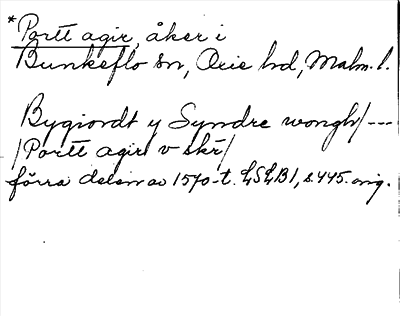 *Portt agir, åker i
Bunkeflo sn, Oxie hd, Malm. l.
Bygiondt y Syndre wongh/---
/Portt agir v skr/
förra delen av 1570-t. LSLB1, s. 445. orig.